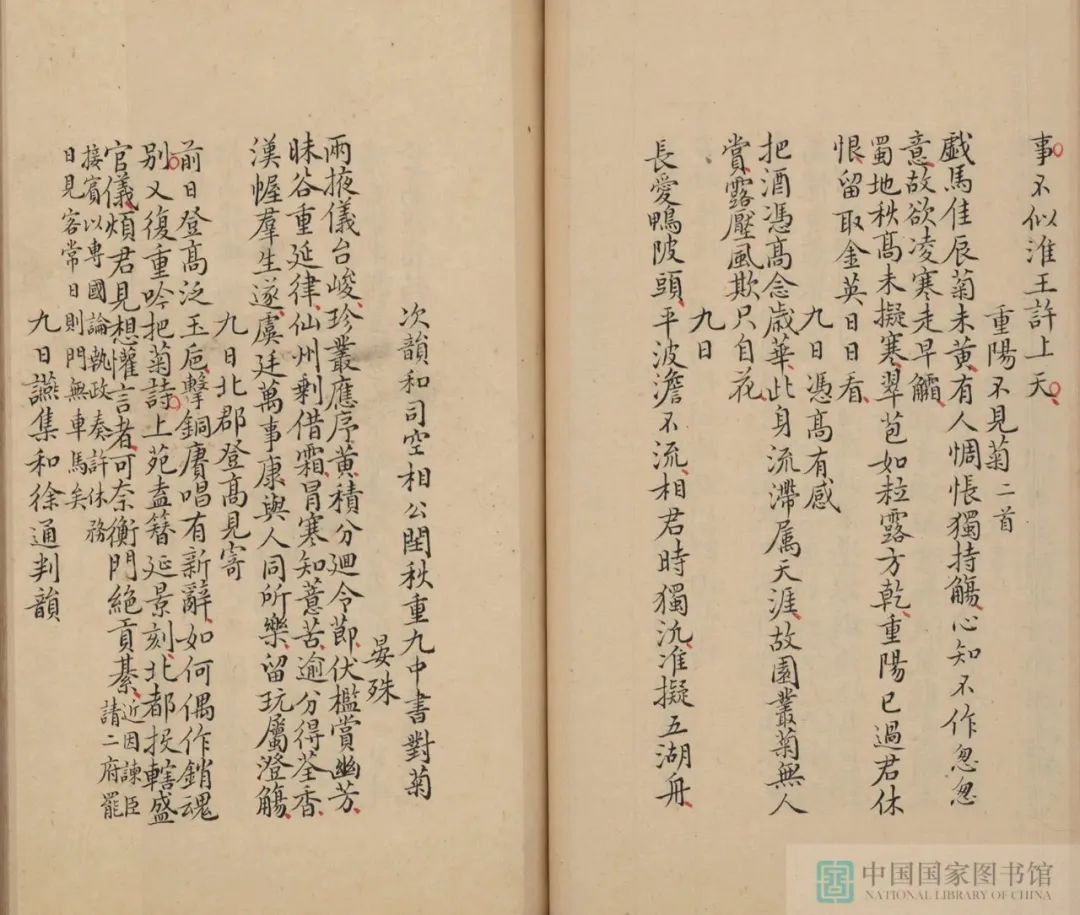 事不似淮王許上天
重陽不見菊二首
戲馬佳辰菊未黃有人惆悵獨持觴心知不作忽忽
意故欲凌寒走早鱨
蜀地秋高未擬寒翠苞如粒露方乾重陽已過君休
恨留取金英日日看
九日憑高有感
把酒憑高念歲華此身流滯属天涯故園叢菊無人
賞露壓風欺只自花
九日
長愛鴨陂頭平波澹不流相君時獨汎准擬五湖舟
次韻和司空相公閏秋重九中書對菊
晏殊
兩掖儀台峻珍叢應序黃積分廻令節伏檻賞幽芳
昧谷重延律仙州剩借霜冒寒知薏苦逾分得荃香
漢幄羣生遂虞廷萬事康與人同所樂留玩屬澄觴
九日北郡登高見寄
前日登高泛玉巵擊銅賡唱有新辭如何偶作銷魂
別又復重吟把菊詩上苑盍簪延景刻北都投轄盛
官儀煩君見想懽言者可奈衡門絶貢綦近因諫臣請二府罷
接賓以專國論執政奏許休務
日見客常日則門無車馬矣
九日讌集和徐通判韻
中国国家图书馆
NATIONAL LIBRARY OF CHINA